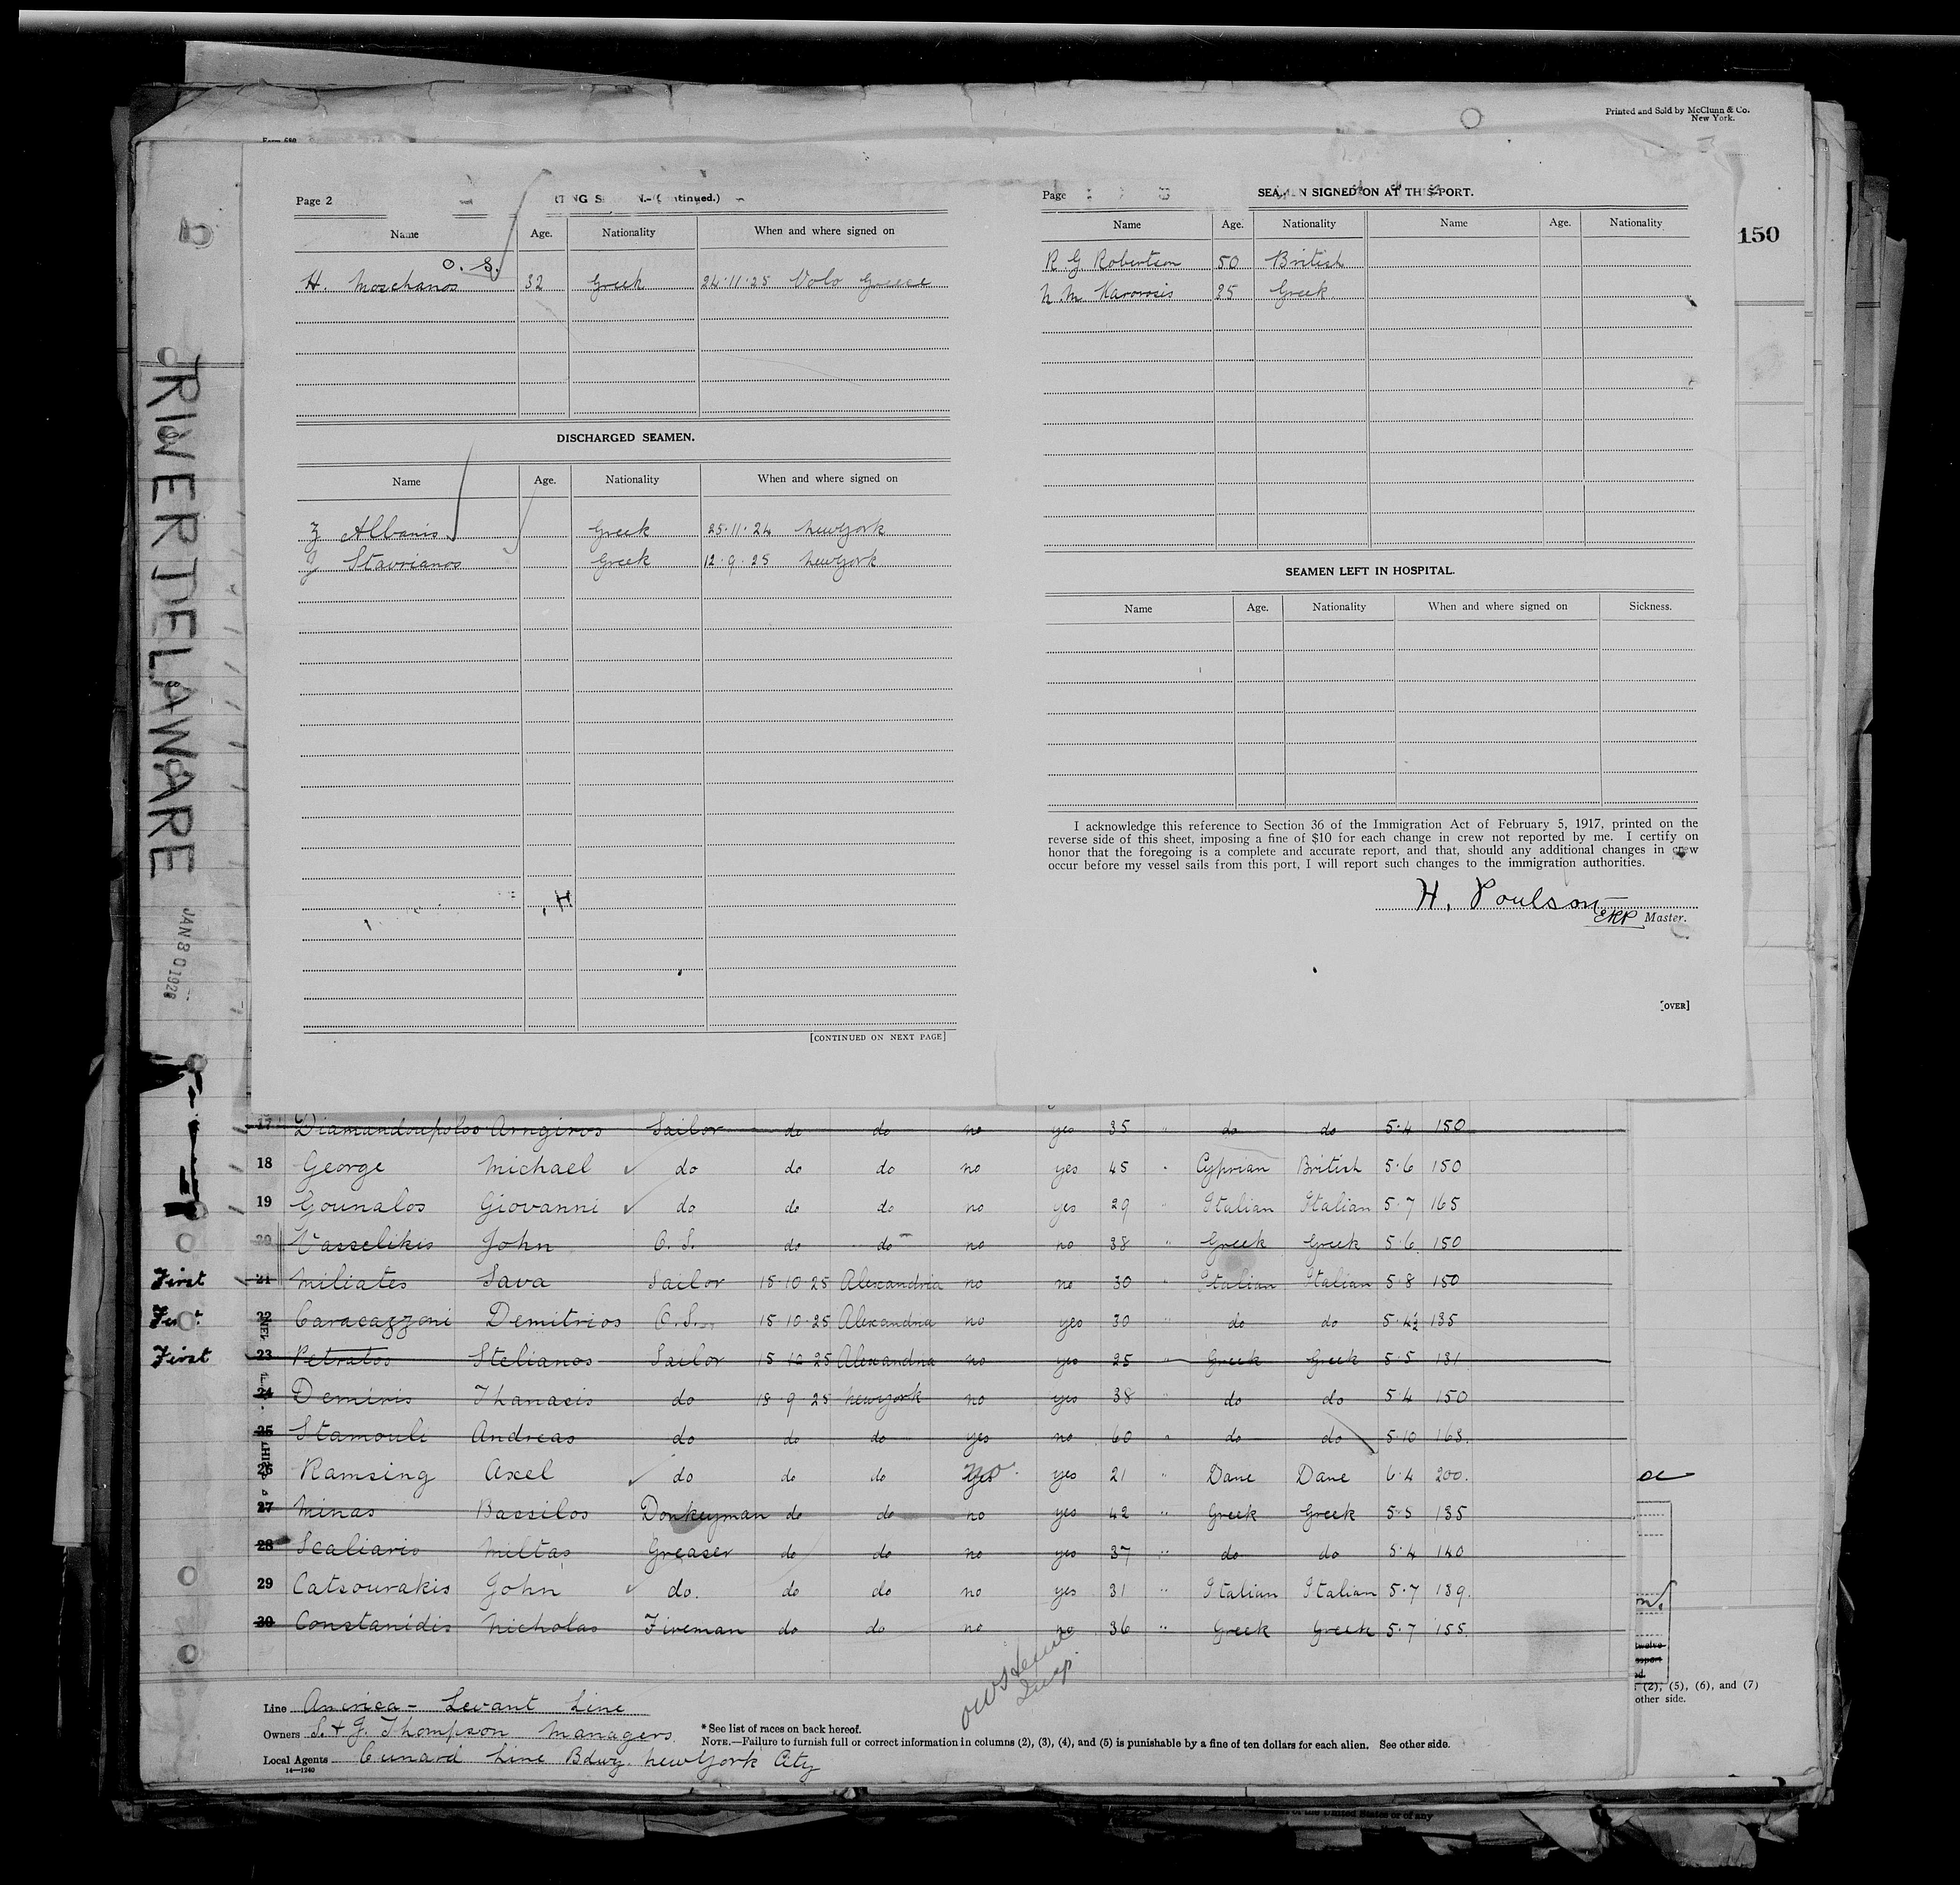 Printed and Sold by McClunn & Co.
New York.
150
Page 2
Name Age. Nationality When and where signed on
O. S.
H. Moschanos 32 Greek 24·11·25 Volo Greece
DISCHARGED SEAMEN.
Name Age. Nationality When and where signed on
Z Albanis Greek 25·11·24 New York
J Stavrianos Greek 12·9·25 New York
[CONTINUED ON NEXT PAGE]
Page
SEAMEN SIGNED ON AT THIS PORT.
Name Age. Nationality Name Age. Nationality
R G Robertson 50 British
35 Greek
SEAMEN LEFT IN HOSPITAL.
Name Age. Nationality When and where signed on Sickness.
I acknowledge this reference to Section 36 of the Immigration Act of February 5, 1917, printed on the
reverse side of this sheet, imposing a fine of $10 for each change in crew not reported by me. I certify on
honor that the foregoing is a complete and accurate report, and that, should any additional changes in crew
occur before my vessel sails from this port, I will report such changes to the immigration authorities.
H. Poulson
Master.
[OVER]
RIVER DELAWARE
17 Diamandoupolos Arngiros Sailor do do no yes 35 " do do 5·4 150
18 George Michael do do do no yes 45 " Cyprian British 5·6 150
19 Gounalos Giovanni do do do no yes 29 " Italian Italian 5·7 165
20 Vasselikis John O. S. do do no no 38 " Greek Greek 5·6 150
First 21 Miliates Sava Sailor 15·10·25 Alexandria no no 30 Italian Italian 5·8 150
First 22 Caracazzoni Demitrios O. S. 15·10·25 Alexandria no yes 30 " do do 5·4½ 135
First 23 Petratos Stelianos Sailor 15·10·25 Alexandria no yes 25 " Greek Greek 5·5 131
24 Demiris Thanasis do 18·9·25 New York no yes 38 " do do 5·4 150
25 Stamouli Andreas do do do yes no 60 " do do 5·10 168.
26 Ramsing Axel do do do no yes 21 " Dane Dane 6·4 200.
27 Minas Bassilos Donkeyman do do no yes 42 " Greek Greek 5·5 135
28 Scaliaris Miltas Greaser do do no yes 37 " do do 5·4 140
29 Catsourakis John do. do do no yes 31 " Italian Italian 5·7 139.
30 Constanidis Nicholas Fireman do do no no 36 " Greek Greek 5·7 155.
Line America - Levant Line
Owners S. & J. Thompson Managers.
Local Agents Cunard Line Bdwy. New York City
14—1240
* See list of races on back hereof.
NOTE.—Failure to furnish full or correct information in columns (2), (3), (4), and (5) is punishable by a fine of ten dollars for each alien. See other side.
(2), (5), (6), and (7)
other side.